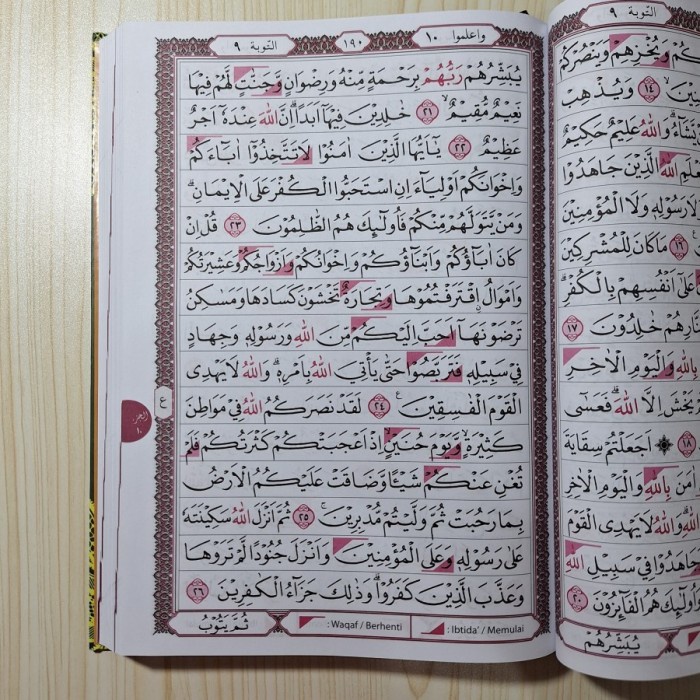 التوبة ٩
١٩٠
واعلموا ١٠
يُبَشِّرُهُمْ رَبُّهُمْ بِرَحْمَةٍ مِّنْهُ وَرِضْوَانٍ وَّجَنّٰتٍ لَّهُمْ فِيْهَا
نَعِيْمٌ مُّقِيْمٌۙ ٢١ خٰلِدِيْنَ فِيْهَآ اَبَدًاۗ اِنَّ اللّٰهَ عِنْدَهٗٓ اَجْرٌ
عَظِيْمٌ ٢٢ يٰٓاَيُّهَا الَّذِيْنَ اٰمَنُوْا لَا تَتَّخِذُوْٓا اٰبَاۤءَكُمْ
وَاِخْوَانَكُمْ اَوْلِيَاۤءَ اِنِ اسْتَحَبُّوا الْكُفْرَ عَلَى الْاِيْمَانِۗ
وَمَنْ يَّتَوَلَّهُمْ مِّنْكُمْ فَاُولٰۤىِٕكَ هُمُ الظّٰلِمُوْنَ ٢٣ قُلْ اِنْ
كَانَ اٰبَاۤؤُكُمْ وَاَبْنَاۤؤُكُمْ وَاِخْوَانُكُمْ وَاَزْوَاجُكُمْ وَعَشِيْرَتُكُمْ
وَاَمْوَالُ ِۨاقْتَرَفْتُمُوْهَا وَتِجَارَةٌ تَخْشَوْنَ كَسَادَهَا وَمَسٰكِنُ
تَرْضَوْنَهَآ اَحَبَّ اِلَيْكُمْ مِّنَ اللّٰهِ وَرَسُوْلِهٖ وَجِهَادٍ
فِيْ سَبِيْلِهٖ فَتَرَبَّصُوْا حَتّٰى يَأْتِيَ اللّٰهُ بِاَمْرِهٖۗ وَاللّٰهُ لَا يَهْدِى
الْقَوْمَ الْفٰسِقِيْنَ ࣖ ٢٤ لَقَدْ نَصَرَكُمُ اللّٰهُ فِيْ مَوَاطِنَ
كَثِيْرَةٍۙ وَّيَوْمَ حُنَيْنٍۙ اِذْ اَعْجَبَتْكُمْ كَثْرَتُكُمْ فَلَمْ
تُغْنِ عَنْكُمْ شَيْـًٔا وَّضَاقَتْ عَلَيْكُمُ الْاَرْضُ
بِمَا رَحُبَتْ ثُمَّ وَلَّيْتُمْ مُّدْبِرِيْنَۚ ٢٥ ثُمَّ اَنْزَلَ اللّٰهُ سَكِيْنَتَهٗ
عَلٰى رَسُوْلِهٖ وَعَلَى الْمُؤْمِنِيْنَ وَاَنْزَلَ جُنُوْدًا لَّمْ تَرَوْهَا
وَعَذَّبَ الَّذِيْنَ كَفَرُوْاۗ وَذٰلِكَ جَزَاۤءُ الْكٰفِرِيْنَ ٢٦
ثُمَّ يَتُوْبُ
: Waqaf / Berhenti
: Ibtida' / Memulai
ع
التوبة ٩
وَيُخْزِهِمْ وَيَنْصُرْكُمْ
١٤ وَيُذْهِبْ
وَاللّٰهُ عَلِيْمٌ حَكِيْمٌ
اللّٰهُ الَّذِيْنَ جَاهَدُوْا
رَسُوْلِهٖ وَلَا الْمُؤْمِنِيْنَ
١٦ مَا كَانَ لِلْمُشْرِكِيْنَ
عَلٰٓى اَنْفُسِهِمْ بِالْكُفْرِۗ
هُمْ خٰلِدُوْنَ ١٧
بِاللّٰهِ وَالْيَوْمِ الْاٰخِرِ
يَخْشَ اِلَّا اللّٰهَ ۗفَعَسٰٓى
١٨ ۞ اَجَعَلْتُمْ سِقَايَةَ
بِاللّٰهِ وَالْيَوْمِ الْاٰخِرِ
وَاللّٰهُ لَا يَهْدِى الْقَوْمَ
جَاهَدُوْا فِيْ سَبِيْلِ اللّٰهِ
وَاُولٰۤىِٕكَ هُمُ الْفَاۤىِٕزُوْنَ ٢٠
يُبَشِّرُهُمْ